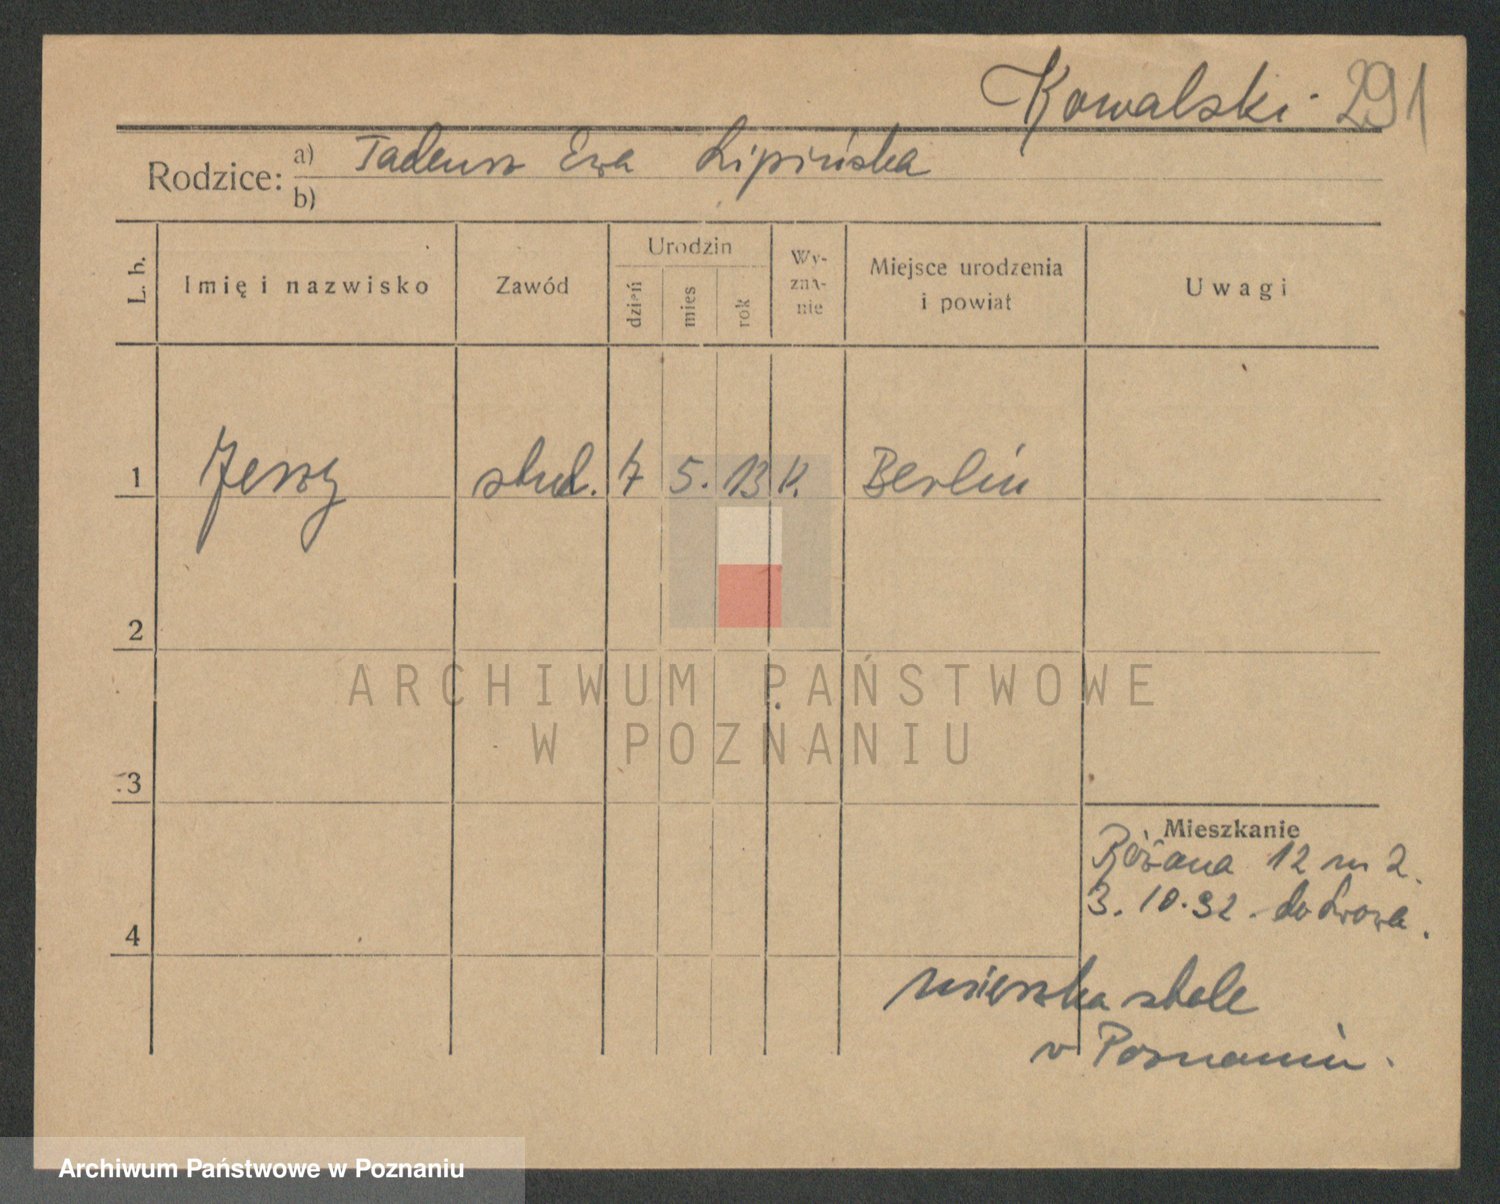 Kowalski 291
Rodzice: a) Tadeusz Ewa Lipińska
b)
L. b. Imię i nazwisko Zawód Urodzin dzień mies rok Wy-zna-nie Miejsce urodzenia i powiat Uwagi
1 Jerzy stud. 7 5. 13 k. Berlin
2
3
4
Mieszkanie
Różana 12 m 2.
3. 10. 32. do Lwowa.
mieszka stale
w Poznaniu.
ARCHIWUM PAŃSTWOWE
W POZNANIU
Archiwum Państwowe w Poznaniu